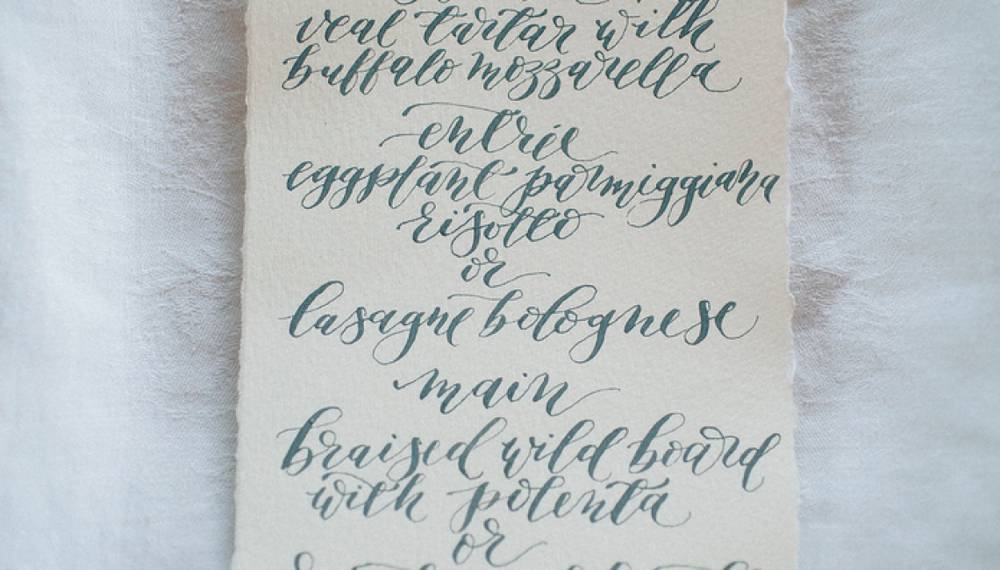 veal tartar with
buffalo mozzarella
entrée
eggplant parmiggiana
risotto
or
lasagne bolognese
main
braised wild board
with polenta
or